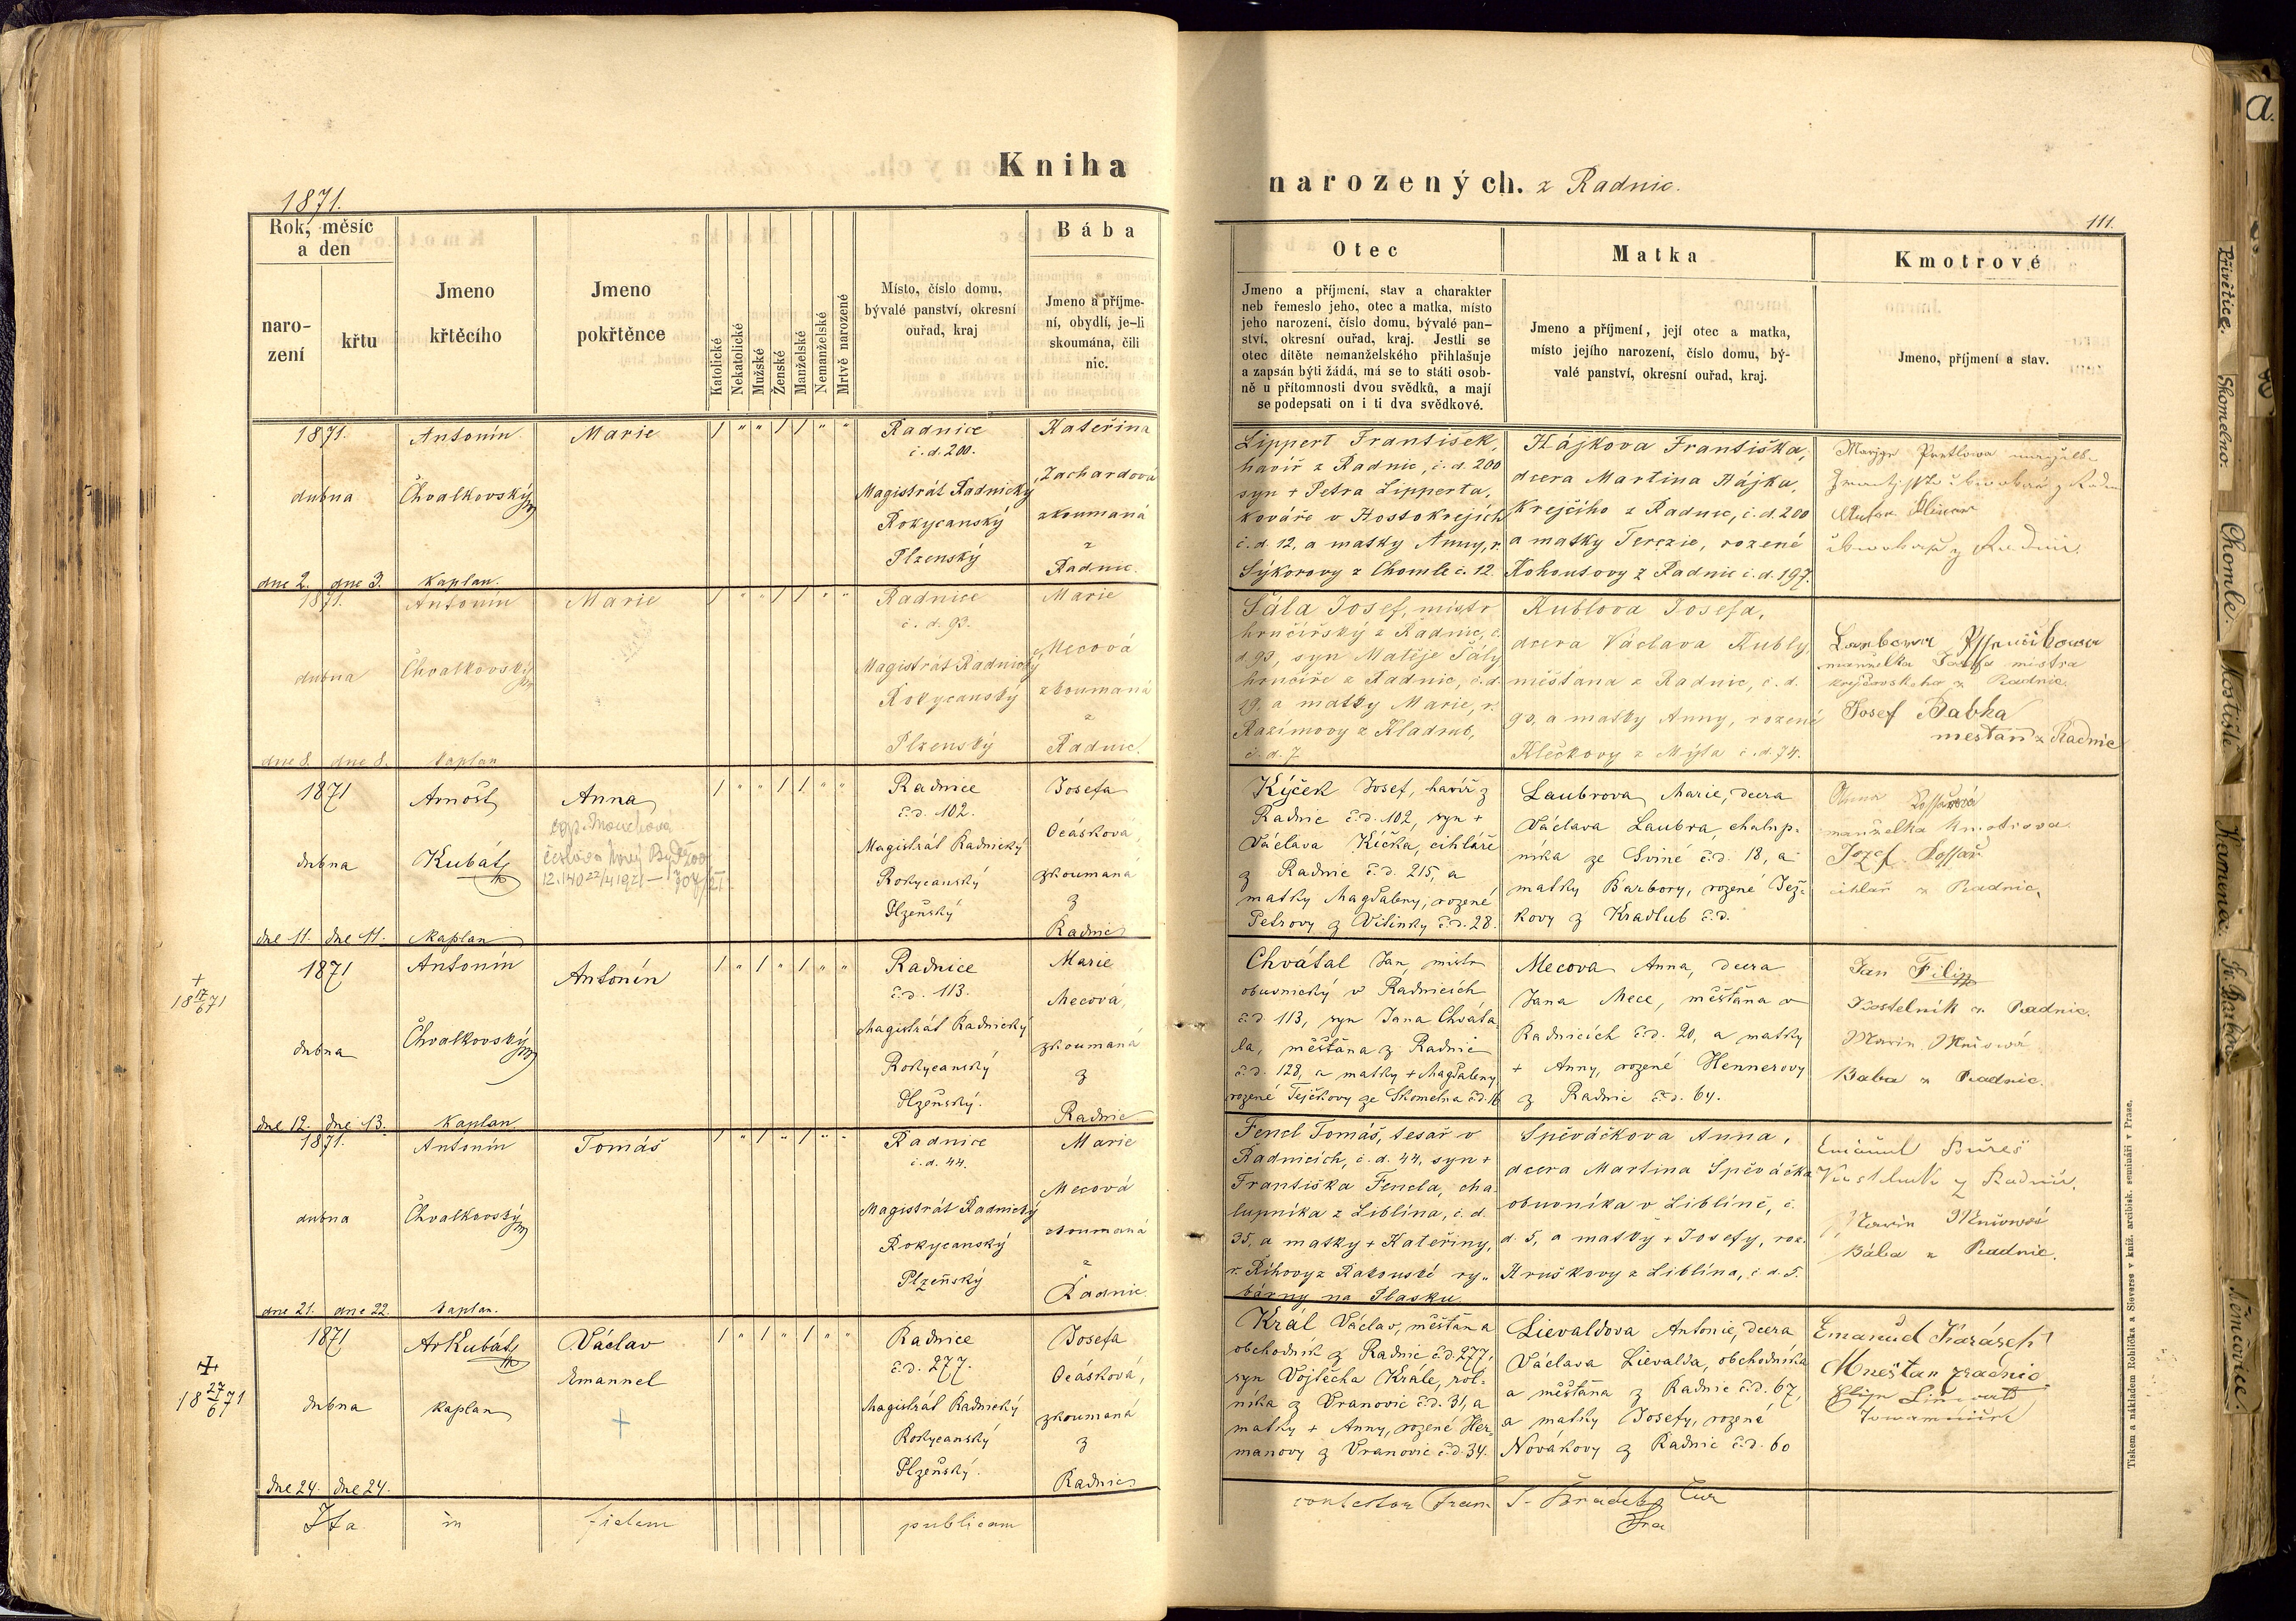 Kniha
1871.
Rok, měsíc a den
naro-
zení
křtu
Jmeno
křtěcího
Jmeno
pokřtěnce
Katolické
Nekatolické
Mužské
Ženské
Manželské
Nemanželské
Mrtvě narozené
Místo, číslo domu,
bývalé panství, okresní
ouřad, kraj
Bába
Jmeno a příjme-
ní, obydlí, je-li
skoumána, čili
nic.
1871. Antonín Marie 1 " " 1 1 " " Radnice Kateřina
č. d. 200.
Zachardová
dubna Chvalkovský Magistrát Radnický
Rokycanský zkoumaná
Plzenský z
dne 2. dne 3. kaplan. Radnic.
1871. Antonín Marie 1 " " 1 1 " " Radnice Marie
č. d. 93.
Mecová
dubna Chvalkovský Magistrát Radnický
Rokycanský zkoumaná
z
Plzenský Radnic.
dne 8. dne 8. kaplan
1871 Arnošt Anna 1 " " 1 1 " " Radnice Josefa
č. d. 102.
Ocásková
dubna Kubát Magistrát Radnický
Rokycanský zkoumaná
Plzeňský z
dne 11. dne 11. kaplan Radnic
1871 Antonín Antonín 1 " 1 " 1 " " Radnice Marie
+
18 17/6 71
č. d. 113. Mecová
dubna Chvalkovský Magistrát Radnický
Rokycanský zkoumaná
z
Plzeňský.
dne 12. dne 13. kaplan Radnic
1871. Antonín Tomáš 1 " 1 " 1 " " Radnice Marie
č. d. 44.
Mecová
dubna Chvalkovský Magistrát Radnický
Rokycanský zkoumaná
Plzeňský z
dne 21. dne 22. kaplan. Radnic.
1871 Ar Kubát Václav 1 " 1 " 1 " " Radnice Josefa
Emannel č. d. 277. Ocásková,
18 27/6 71
dubna kaplan Magistrát Radnický zkoumaná
Rokycanský z
Plzeňský.
dne 24. dne 24. Radnic
Ita in fidem publicam
narozených. z Radnic.
111.
Otec
Jmeno a příjmení, stav a charakter
neb řemeslo jeho, otec a matka, místo
jeho narození, číslo domu, bývalé pan-
ství, okresní ouřad, kraj. Jestli se
otec dítěte nemanželského přihlašuje
a zapsán býti žádá, má se to státi osob-
ně u přítomnosti dvou svědků, a mají
se podepsati on i ti dva svědkové.
Matka
Jmeno a příjmení, její otec a matka,
místo jejího narození, číslo domu, bý-
valé panství, okresní ouřad, kraj.
Kmotrové
Jmeno, příjmení a stav.
Lippert František,
havíř z Radnic, č. d. 200
syn + Petra Lipperta,
kováře v Hostokrejích
č. d. 12, a matky Anny, r.
Sýkorovy z Chomle č. 12.
Hájkova Františka,
dcera Martina Hájka,
krejčího z Radnic, č. d. 200
a matky Terezie, rozené
Kohoutovy z Radnic č. d. 197.
Šála Josef, mistr
hrnčířský z Radnic, č.
d. 93, syn Matěje Šály
hrnčíře z Radnic, č. d.
19. a matky Marie, r.
Razímovy z Kladrub,
č. d. 7.
Kublova Josefa,
dcera Václava Kubly,
měšťana z Radnic, č. d.
90, a matky Anny, rozené
Klečkovy z Mýta č. d. 74.
manželka Josefa mistra
krejčovskeho z Radnic.
Josef Babka
mešťan z Radnic
Kýček Josef, havíř z
Radnic č. d. 102, syn +
Václava Kíčka, cihláře
z Radnic č. d. 215, a
matky Magdaleny, rozené
Petrovy z Vitinky č. d. 28.
Laubrova Marie, dcera
Václava Laubra, chalup-
níka ze Sviné č. d. 18, a
matky Barbory, rozené Jež-
kovy z Kradlub č. d.
Anna
manželka kmotrova
Jozef
cihlář z Radnic
Chvátal Jan, mistr
obuvnický v Radnicích
č. d. 113, syn Jana Chváta
la, měšťana z Radnic
č. d. 128, a matky + Magdaleny
rozené Tejčkovy ze Skomelna č. d. 16
Mecova Anna, dcera
Jana Mece, měšťana v
Radnicích č. d. 20, a matky
+ Anny, rozené Hennerovy
z Radnic č. d. 64.
Jan Filip
Kostelník z Radnic.
Baba z Radnic.
Fencl Tomáš, tesař v
Radnicích, č. d. 44, syn +
Františka Fencla, cha-
lupníka z Liblína, č. d.
35, a matky + Kateřiny,
r. Říhovy z Rakouské ry-
bárny na Plasku.
Spěváčkova Anna,
dcera Martina Spěváčka
obuvníka v Liblíně, č.
d. 5, a matky + Josefy, roz.
Hruškovy z Liblína, č. d. 5.
Bába z Radnic.
Král Václav, měšťan a
obchodník z Radnic č. d. 277,
syn Vojtěcha Krále, rol-
níka z Vranovic č. d. 31, a
matky + Anny, rozené Her-
manovy z Vranovic č. d. 34.
Lievaldova Antonie, dcera
Václava Lievalda, obchodníka
a měšťana z Radnic č. d. 67,
a matky Josefy, rozené
Novákovy z Radnic č. d. 60
Emanuel Karásek
Mnešťan z radnic
Tiskem a nákladem Rohlíčka a Sieverse v kníž. arcibisk. semináři v Praze.
a.
Přívětice.
Skomelno.
Chomle.
Kostiště.
Kamenná.
Sv. Barbora
Němčovice.